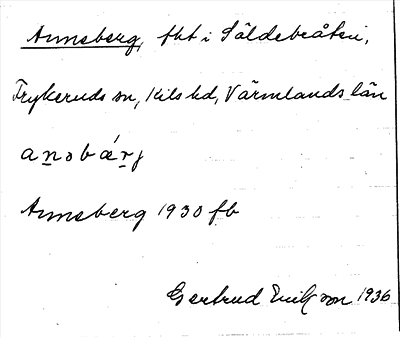 Annsberg, tht i Säldebråten,
Frykeruds sn, Kils hd, Värmlands län
anəbærj
Annsberg 1930 fb
Gertrud Erikson 1936